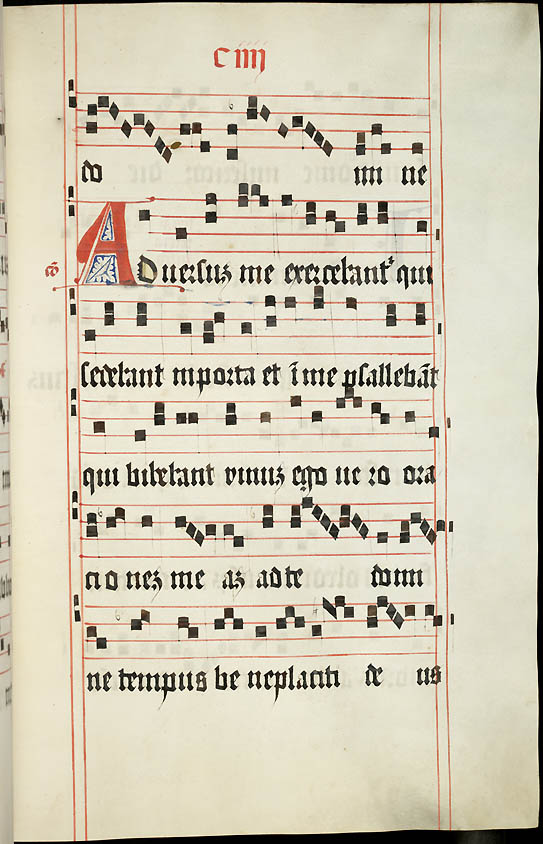 C iiij
do mi ne
cō ADuersuz me exercebant^r qui
sedebant inporta et ī me psallebāt
qui bibebant vinuz ego ue ro ora
ti o nez me az ad te domi
ne tempus be neplaciti de us